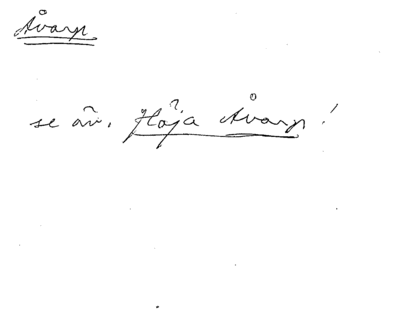 Åvarp
se äv. Höja Åvarp!